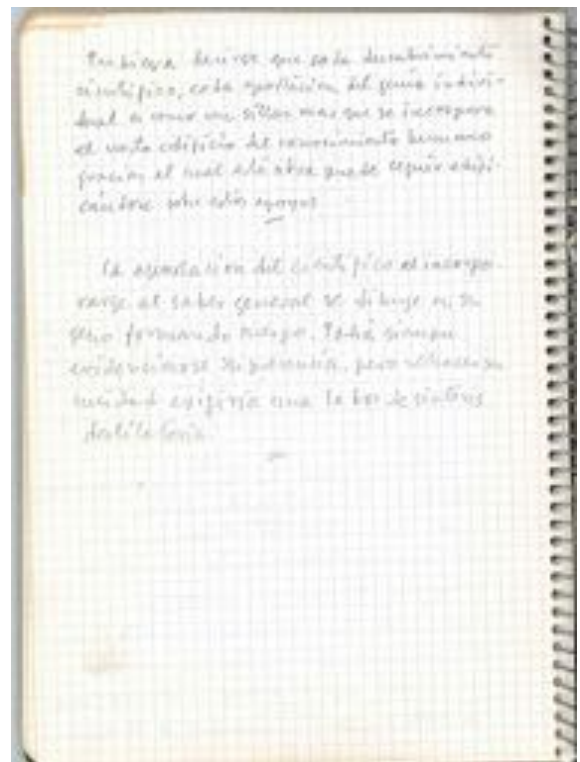 decirse que cada descubrimiento
científico, cada aportación del genio indivi-
dual es como un sillar más que se incorpora
al vasto edificio del conocimiento humano
gracias al cual esta obra puede seguir edifi-
cándose sobre estos apoyos
La aportación del científico al incorpo-
rarse al saber general se diluye en su
seno formando cuerpo. Podrá siempre
evidenciarse su presencia, pero rehacer su
unidad exigiría una labor de síntesis